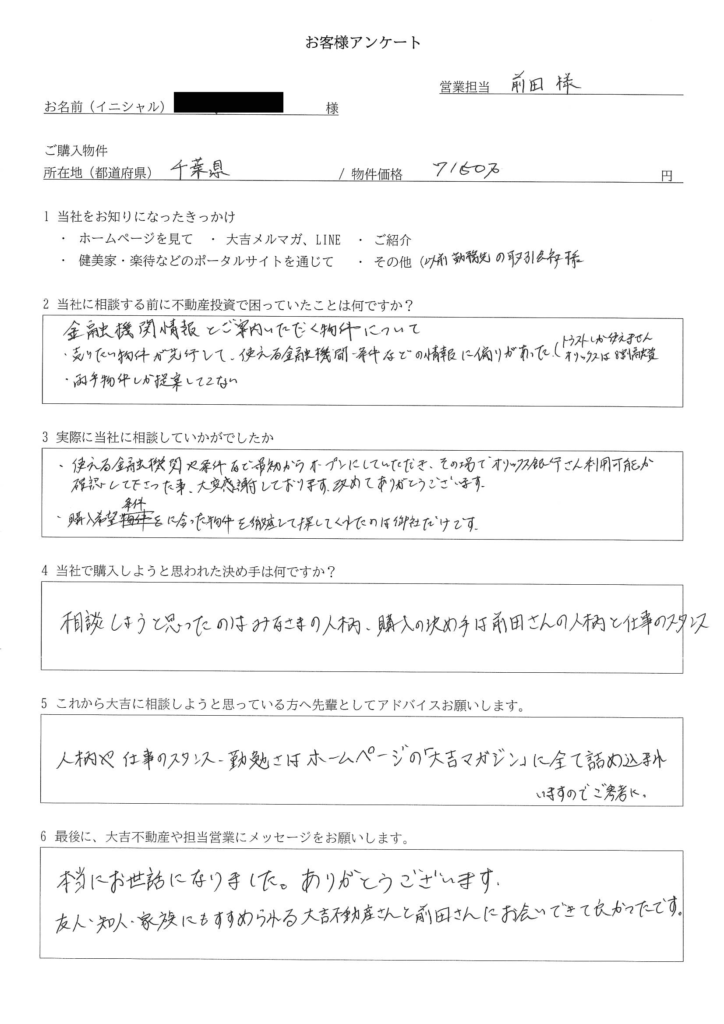 お客様アンケート
営業担当 前田 様
お名前（イニシャル） 様
ご購入物件
所在地（都道府県） 千葉県 / 物件価格 7150万 円
1 当社をお知りになったきっかけ
・ ホームページを見て ・ 大吉メルマガ、LINE ・ ご紹介
・ 健美家・楽待などのポータルサイトを通じて ・ その他（以前勤務先の取引会社様
2 当社に相談する前に不動産投資で困っていたことは何ですか？
金融機関情報とご案内いただく物件について
・売りたい物件が先行して、使える金融機関・条件などの情報に偏りがあった（トラストしか使えません
オリックスは8割融資
・両手物件しか提案してこない
3 実際に当社に相談していかがでしたか
・使える金融機関や条件など最初からオープンにしていただき、その場でオリックス銀行さん利用可能か
確認して下さった事、大変感謝しております。改めてありがとうございます。
条件
・購入希望物件をに合った物件を徹底して探してくれたのは御社だけです。
4 当社で購入しようと思われた決め手は何ですか？
相談しようと思ったのはみなさまの人柄、購入の決め手は前田さんの人柄と仕事のスタンス
5 これから大吉に相談しようと思っている方へ先輩としてアドバイスお願いします。
人柄や仕事のスタンス・勤勉さはホームページの「大吉マガジン」に全て詰め込まれ
いますのでご参考に。
6 最後に、大吉不動産や担当営業にメッセージをお願いします。
本当にお世話になりました。ありがとうございます。
友人・知人・家族にもすすめられる大吉不動産さんと前田さんにお会いできて良かったです。